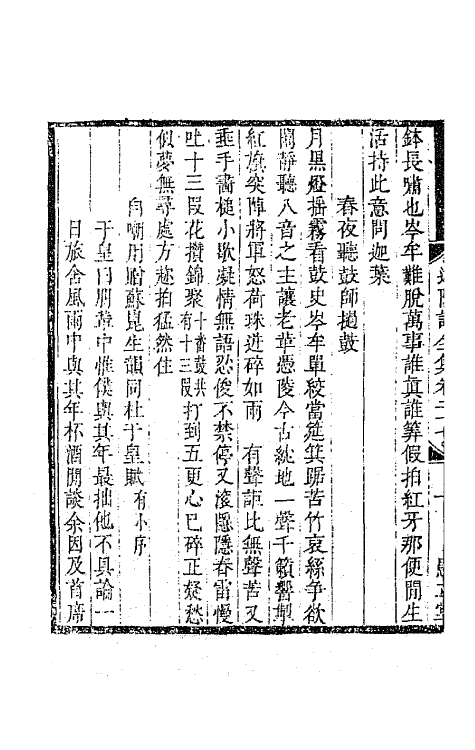 鉢長嘯也岑牟難脫萬事誰眞誰算假拍紅牙那便閒生
活持此意問迦葉
春夜聽鼓師撾鼓
月黑燈搖霧看鼓史岑牟單絞當筵箕踞苦竹哀絲爭欲
鬧靜聽八音之主讓老革憑陵今古純地一聲千籟
紅旗突陣將軍怒荷珠迸碎如雨 有聲詎比無聲苦又
垂手畵槌小歇凝情無語恐俊不禁停又滚隱隱春雷慢
吐十三段花攢錦聚十番鼓共有十三段打到五更心已碎正凝愁
似夢無尋處方趂拍猛然住
自嘲用贈蘇崑生韻同杜于皇賦有小序
于皇曰朋軰中惟僕與其年最拙他不具論一
日旅舍風雨中與其年杯酒閒談余因及首席